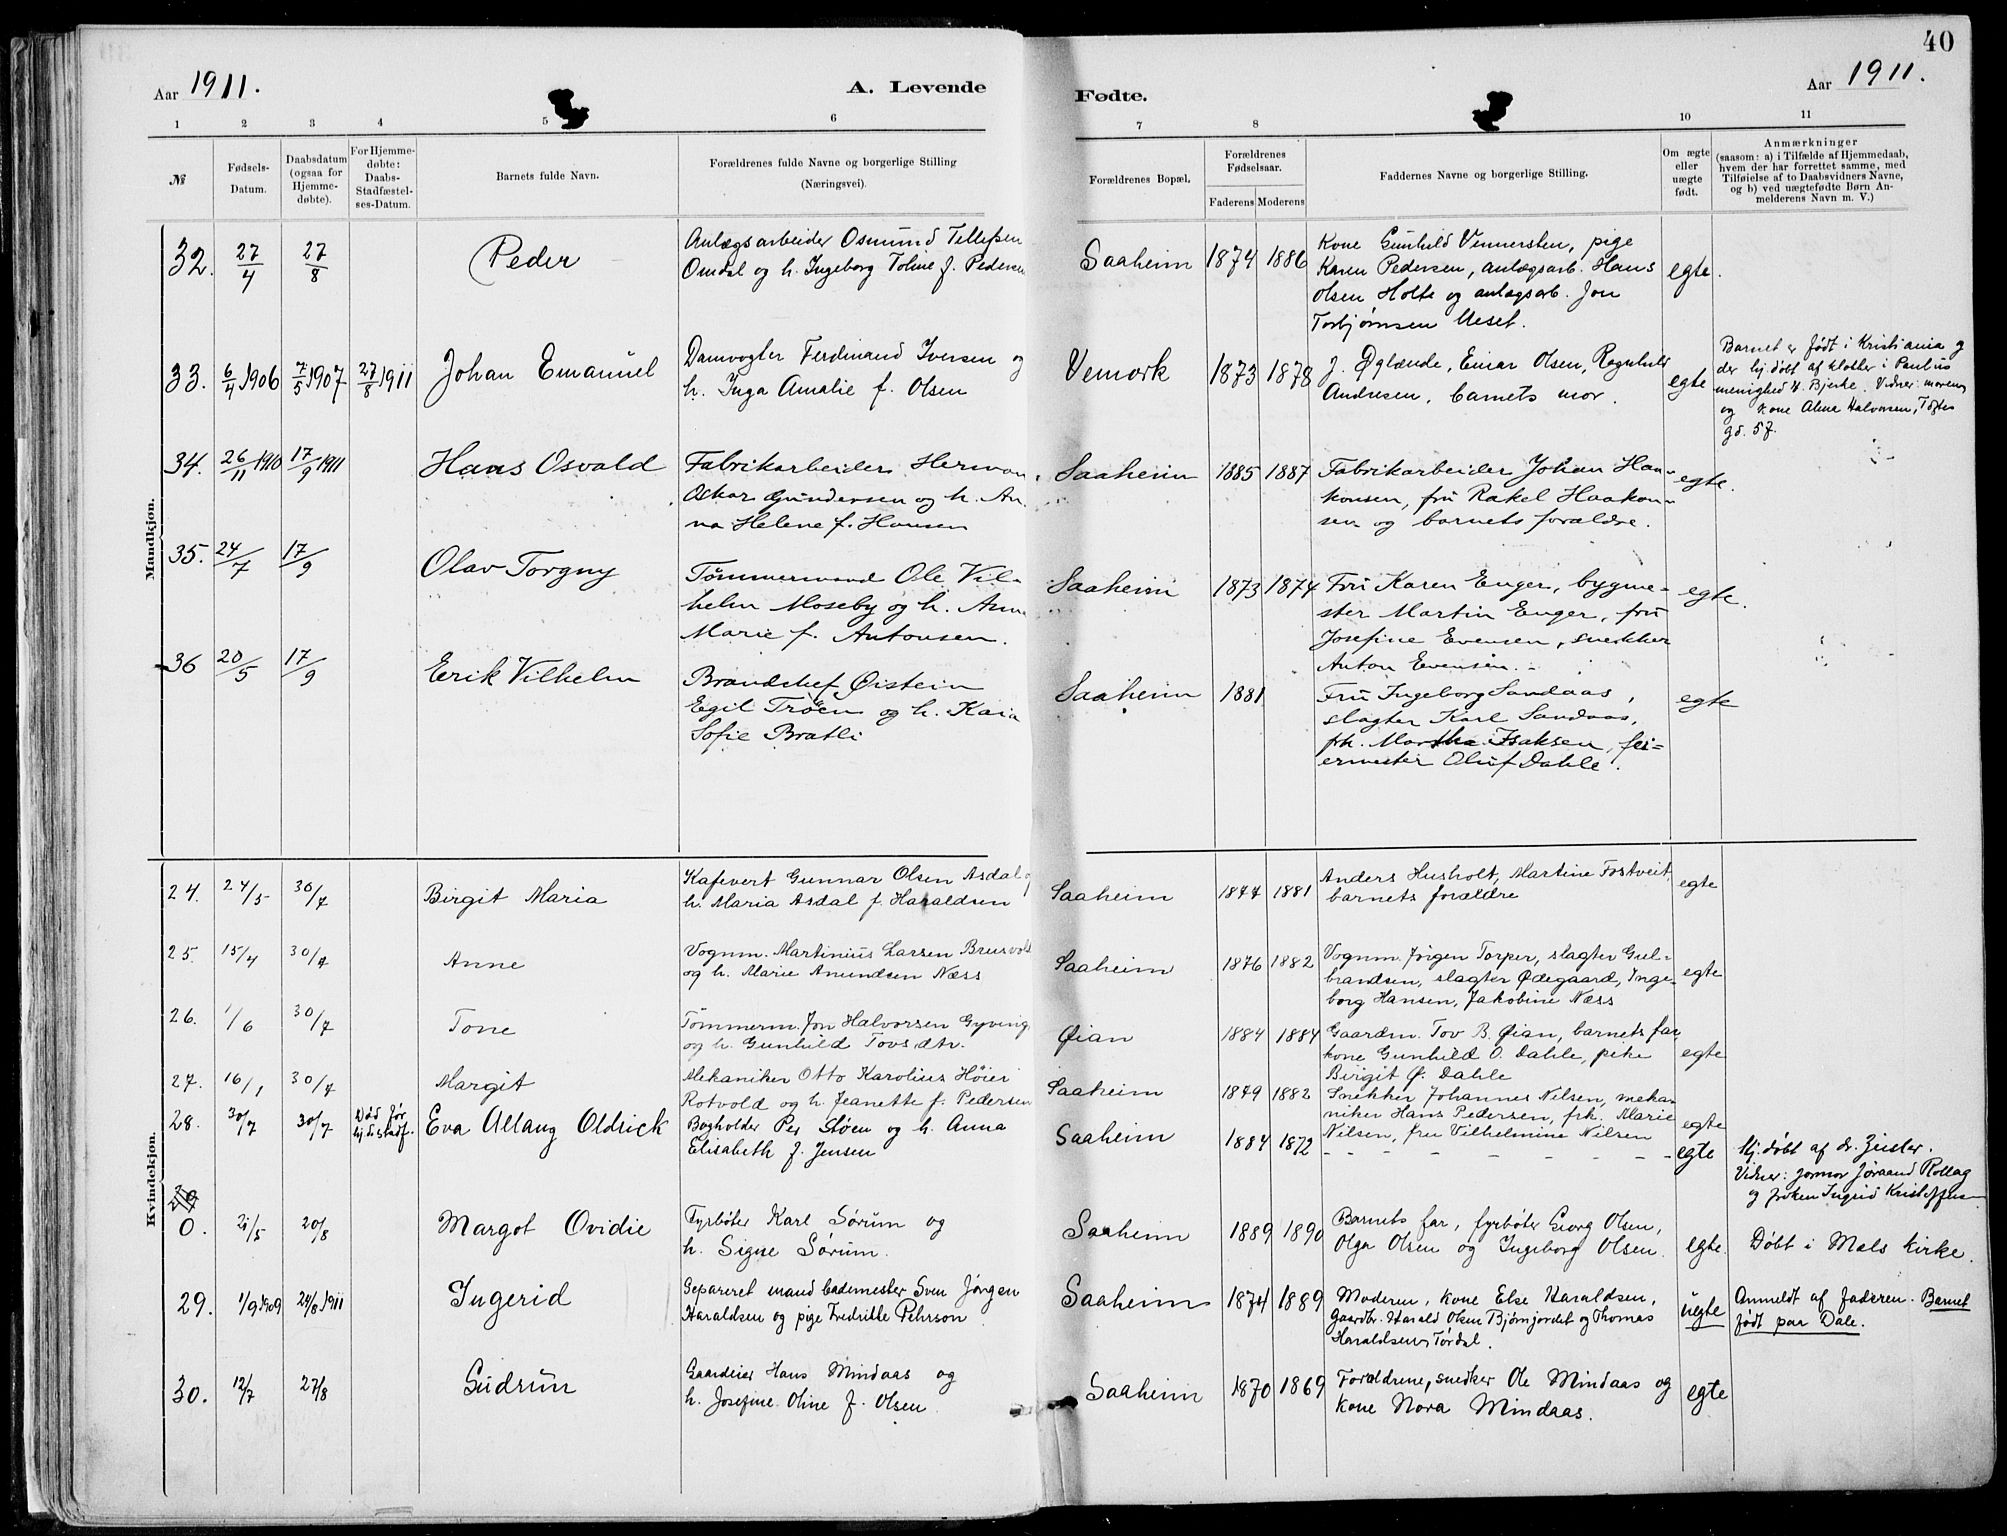 40
Aar 1911.
A. Levende
Fødte.
Aar 1911.
1 2 3 4 5 6
7 8 10 11
№
Fødsels-
Datum.
Daabsdatum
(ogsaa for
Hjemme-
døbte).
For Hjemme-
døbte:
Daabs-
Stadfæstel-
ses-Datum.
Barnets fulde Navn.
Forældrenes fulde Navne og borgerlige Stilling
(Næringsvei).
Forældrenes Bopæl.
Forældrenes
Fødselsaar.
Faderens Moderens
Faddernes Navne og borgerlige Stilling.
Om ægte
eller
uægte
født.
Anmærkninger
(saasom: a) i Tilfælde af Hjemmedaab,
hvem der har forrettet samme, med
Tilføielse af to Daabsvidners Navne,
og b) ved uægtefødte Børn An-
melderens Navn m. V.)
Mandkjøn.
32. 27/4 27/8 Peder
Anlægsarbeider Osmund Tellefsen
Omdal og h. Ingeborg Toline f. Pedersen
Saaheim 1874 1886
Kone Gunhild Vennersten, pige
Karen Pedersen, anlægsarb. Hans
Olsen Holte og anlægsarb. Jon
Torbjørnsen Ueset.
egte.
33. 6/4 1906 7/5 1907 27/8 1911 Johan Emanuel
Damvogter Ferdinand Iversen og
h. Inga Amalie f. Olsen
Vemork 1873 1878
J. Øglænde, Einar Olsen, Ragnhild
Andresen, barnets mor.
egte
Barnet er født i Kristiania og
der hj.døbt af klokker i Paulus
menighed H. Bjerke. Vidner: moren
og kone Alma Halvorsen, Toftes
gd. 57.
34. 26/11 1910 17/9 1911 Hans Osvald
Fabrikarbeider Herman
Oskar Gundersen og h. An-
na Helene f. Hansen
Saaheim 1885 1887
Fabrikarbeider Johan Haa-
konsen, fru Rakel Haakon-
sen og barnets forældre.
egte.
35. 24/7 17/9 Olav Torgny
Tømmermand Ole Vil-
helm Moseby og h. Anna
Marie f. Antonsen.
Saaheim 1873 1874
Fru Karen Enger, bygme-
ster Martin Enger, fru
Josefine Evensen, snekker
Anton Evensen.
egte.
36 20/5 17/9 Erik Vilhelm
Brandchef Øistein
Egil Trøen og h. Kaia
Sofie Bratli
Saaheim 1881
Fru Ingeborg Sandaas,
slagter Karl Sandaas,
frk. Martha Isaksen, fei-
ermester Oluf Dahle.
egte
Kvindekjøn.
24. 24/5 30/7 Birgit Maria
Kafevert Gunnar Olsen Asdal og
h. Maria Asdal f. Haraldsen
Saaheim 1877 1881
Anders Husholt, Martine Fostveit,
barnets forældre
egte
25. 15/4 30/7 Anne
Vognm. Martinius Larsen Brusvold
og h. Marie Amundsen Næss
Saaheim 1876 1882
Vognm. Jörgen Torper, slagter Gul-
brandsen, slagter Ødegaard, Inge-
borg Hansen, Jakobine Næss
egte
26. 1/6 30/7 Tone
Tømmerm. Jon Halvorsen Gyving
og h. Gunhild Tovsdtr.
Øian 1884 1884
Gaardm. Tov B. Øian, barnets far,
kone Gunhild O. Dahle, pike
Birgit Ø. Dahle
egte
27. 16/1 30/7 Margit
Mekaniker Otto Karolius Høier
Rotvold og h. Jeanette f. Pedersen
Saaheim 1879 1882
Snekker Johannes Nilsen, meka-
niker Hans Pedersen, frk. Marie
Nilsen, fru Vilhelmine Nilsen
egte
28. 30/7 30/7 Död før
hj.d.stadf. Eva Allaug Oldrick
Bogholder Per Støen og h. Anna
Elisabeth f. Jensen
Saaheim 1884 1872
- - - - - - - -
egte
Hj.døbt af dr. Zeister.
Vidner: jormor Jøraand Rollag
og frøken Ingrid Kristoffersen
0. 21/5 20/8 Margot Ovidie
Fyrbøter Karl Sørum og
h. Signe Sørum.
Saaheim 1889 1890
Barnets far, fyrbøter Georg Olsen,
Olga Olsen og Ingeborg Olsen.
egte.
Døbt i Mæls kirke.
29. 1/9 1909 24/8 1911 Ingerid
Separeret mand bademester Sven Jørgen
Haraldsen og pige Fredrikke Pehrson.
Saaheim 1874 1889
Moderen, kone Else Haraldsen,
Gaardbr. Harald Olsen Bjørnjordet og Thomas
Haraldsen, Tørdal.
uegte
Anmeldt af faderen. Barnet
født paa Dale.
30. 12/7 27/8 Gudrun
Gaardeier Hans Mindaas og
h. Josefine Oline f. Olsen.
Saaheim 1870 1869
Forældrene, snedker Ole Mindaas og
kone Nora Mindaas.
egte